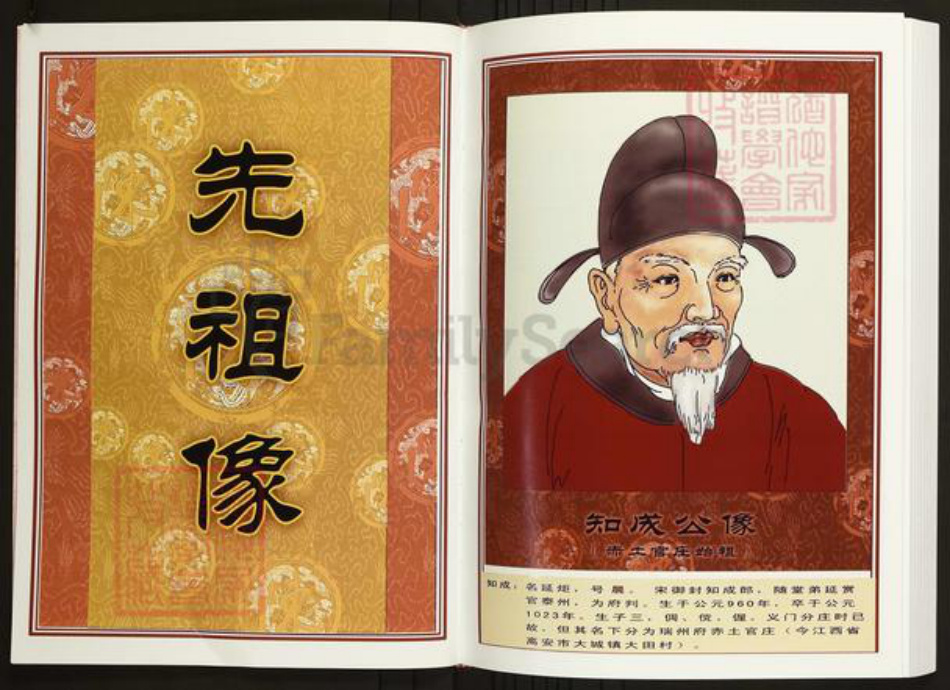 先祖像
知成公像
赤土官庄始祖
知成：名延炬，号晨。宋御封知成郎，随堂弟延赏
官泰州，为府判。生于公元960年，卒于公元
1023年。生子三，侗、傥、偓。义门分庄时已
故，但其名下分为瑞州府赤土官庄（今江西省
高安市大城镇大田村）。
FamilySearch